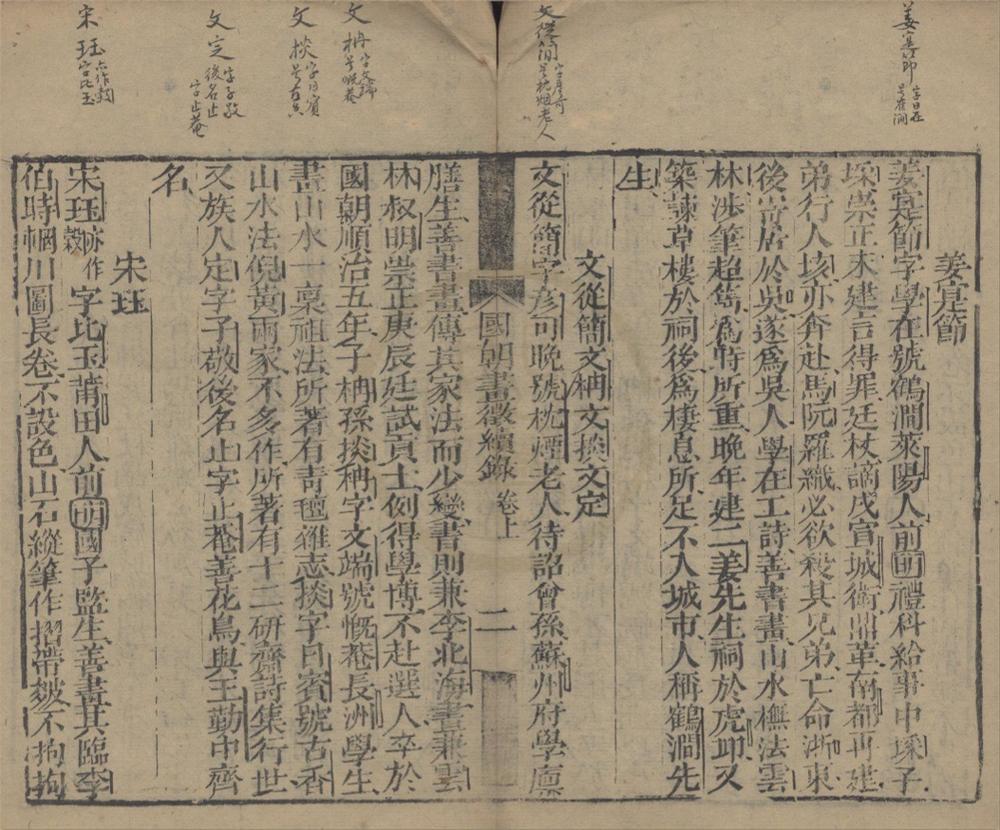 姜寔節 字學在 号鶴澗
文從簡 字彦可 号枕烟老人
文枏 字文端 号慨菴
文掞 字日賓 号古香
文定 字子敬 後名止 字止菴
宋珏 亦作瑴 字比玉
姜寔節
姜寔節字學在號鶴澗萊陽人前明禮科給事中埰子
埰崇正末建言得罪廷杖謫戍宣城衛鼎革南都再建
弟行人垓亦奔赴馬阮羅織必欲殺其兄弟亡命浙東
後寄居於吳遂爲吳人學在工詩善書畫山水橅法雲
林渉筆超雋爲時所重晚年建二姜先生祠於虎邱又
築諫草樓於祠後爲棲息所足不入城市人稱鶴澗先
生
文從簡文枏文掞文定
文從簡字彦可晚號枕煙老人待詔曾孫蘇州府學廪
國朝畫徵續錄 卷上 二
膳生善書畫傳其家法而少變書則兼李北海畫兼雲
林叔明崇正庚辰廷試貢士例得學博不赴選人卒於
國朝順治五年子枏孫掞枏字文端號慨菴長洲學生
畫山水一稟祖法所著有青氊雜志掞字日賓號古香
山水法倪黄兩家不多作所著有十二研齋詩集行世
又族人定字子敬後名止字止菴善花鳥與王勤中齊
名
宋珏
宋珏亦作瑴字比玉莆田人前明國子監生善畫其臨李
伯時輞川圖長卷不設色山石縱筆作摺帶皴不拘拘